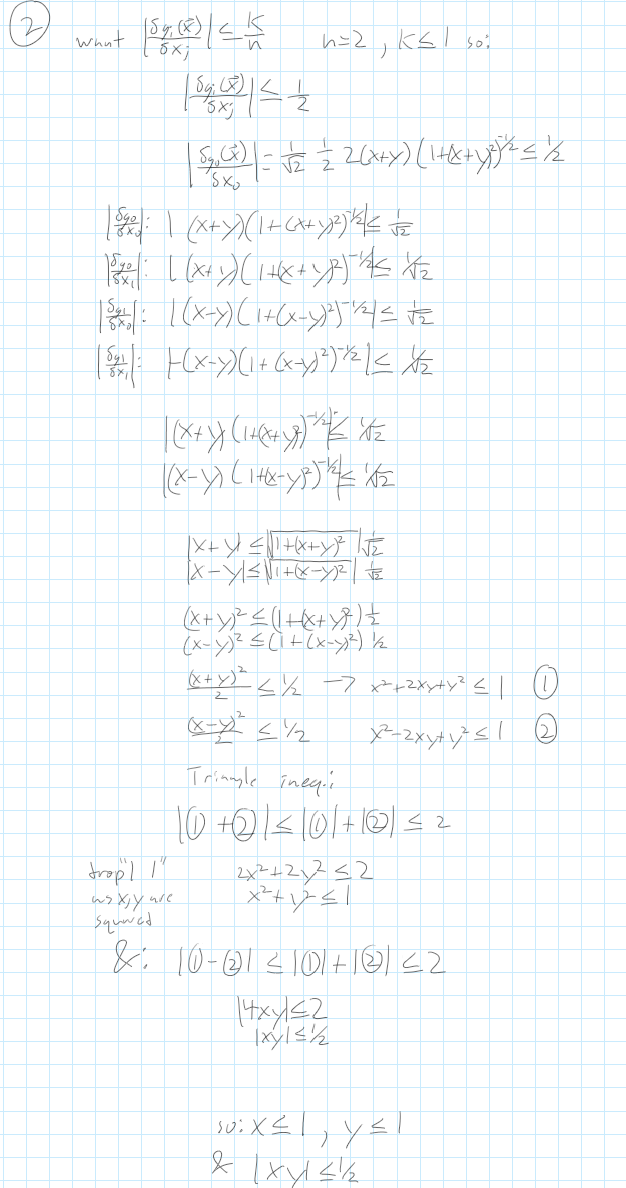 ②
want |δg_i(x⃗)/δx_j| ≤ K/n   n=2, K≤1 so:
|δg_i(x⃗)/δx_j| ≤ 1/2
|δg_0(x⃗)/δx_0| = 1/√2 1/2 2(x+y)(1+(x+y)²)^-1/2 ≤ 1/2
|δg_0/δx_0|: |(x+y)(1+(x+y)²)^-1/2| ≤ 1/√2
|δg_0/δx_1|: |(x+y)(1+(x+y)²)^-1/2| ≤ 1/√2
|δg_1/δx_0|: |(x-y)(1+(x-y)²)^-1/2| ≤ 1/√2
|δg_1/δx_1|: |-(x-y)(1+(x-y)²)^-1/2| ≤ 1/√2
|(x+y)(1+(x+y)²)^-1/2| ≤ 1/√2
|(x-y)(1+(x-y)²)^-1/2| ≤ 1/√2
|x+y| ≤ |√(1+(x+y)²)| 1/√2
|x-y| ≤ |√(1+(x-y)²)| 1/√2
(x+y)² ≤ (1+(x+y)²) 1/2
(x-y)² ≤ (1+(x-y)²) 1/2
(x+y)²/2 ≤ 1/2 → x²+2xy+y² ≤ 1 ①
(x-y)²/2 ≤ 1/2 x²-2xy+y² ≤ 1 ②
Triangle ineq.:
|① + ②| ≤ |①| + |②| ≤ 2
drop "| |" 2x²+2y² ≤ 2
as x,y are x²+y² ≤ 1
squared
&: |①-②| ≤ |①| + |②| ≤ 2
|4xy| ≤ 2
|xy| ≤ 1/2
so: x ≤ 1, y ≤ 1
& |xy| ≤ 1/2